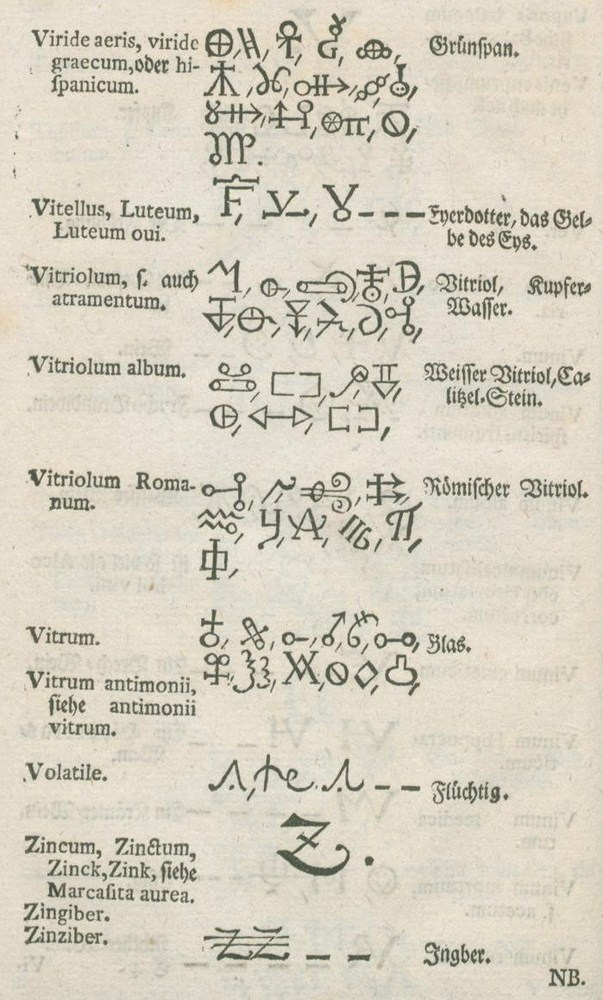 Viride aeris, viride Grünſpan.
graecum, oder hi-
ſpanicum.
Vitellus, Luteum, Eyerdotter, das Gel-
Luteum oui. be des Eys.
Vitriolum, ſ. auch Vitriol, Kupfer-
atramentum. Waſſer.
Vitriolum album. Weiſſer Vitriol, Ca-
litzel-Stein.
Vitriolum Roma- Römiſcher Vitriol.
num.
Vitrum. Glas.
Vitrum antimonii,
ſiehe antimonii
vitrum.
Volatile. Flüchtig.
Zincum, Zinctum,
Zinck, Zink, ſiehe
Marcaſita aurea.
Zingiber.
Zinziber. Ingber.
NB.